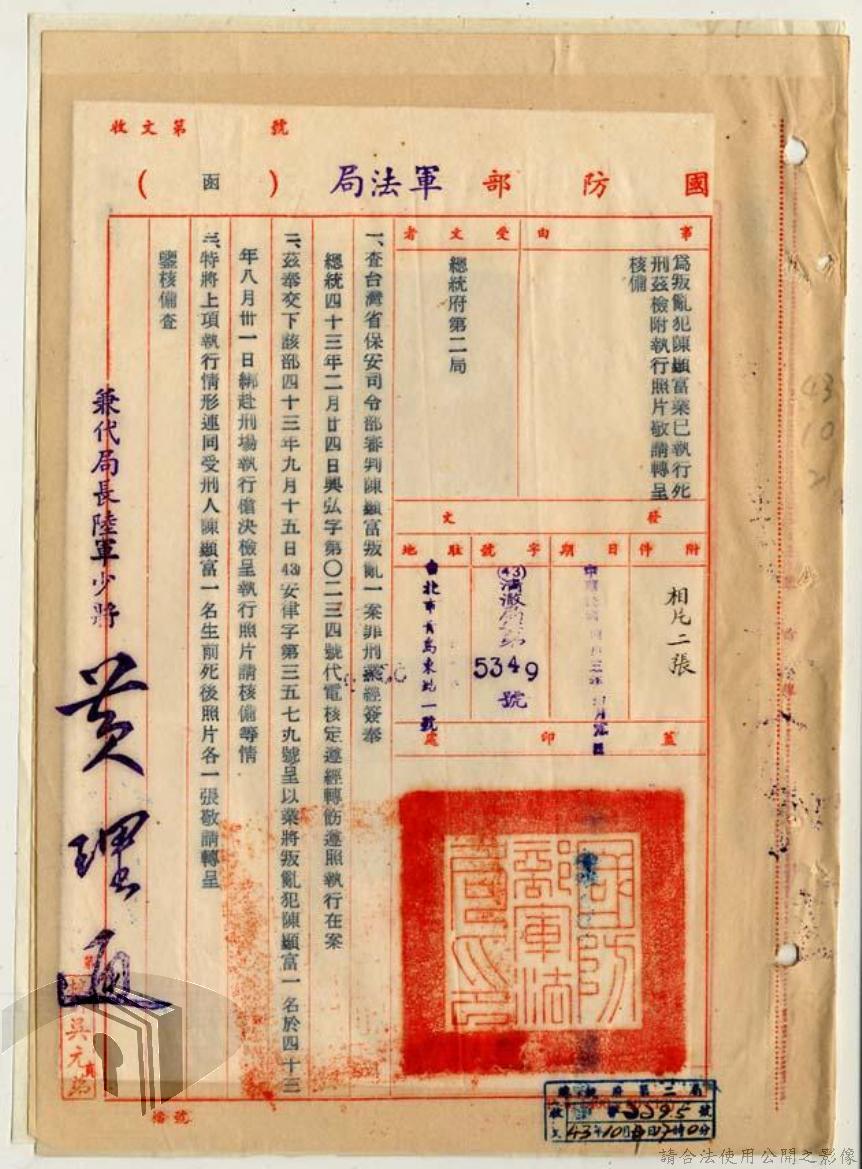 收文第 號
國防部軍法局(函)
事由
為叛亂犯陳顯富業已執行死
刑茲檢附執行照片敬請轉呈
核備
受文者
總統府第二局
發文
附件
相片二張
日期
字號
(43)清澈局第
5349
號
駐地
台北市青島東路一號
蓋印處
一、查台灣省保安司令部審判陳顯富叛亂一案罪刑業經簽奉
總統四十三年二月廿四日興弘字第〇二三四號代電核定遵經轉飭遵照執行在案
二、茲奉交下該部四十三年九月十五日(43)安律字第三五七九號呈以業將叛亂犯陳顯富一名於四十三
年八月卅一日綁赴刑場執行槍決檢呈執行照片請核備等情
三、特將上項執行情形連同受刑人陳顯富一名生前死後照片各一張敬請轉呈
鑒核備查
兼代局長陸軍少將
國防部軍法局印
吳元
總統府第二局
收
文
2295號
43年10月
檔號
43
10
21
請合法使用公開之影像